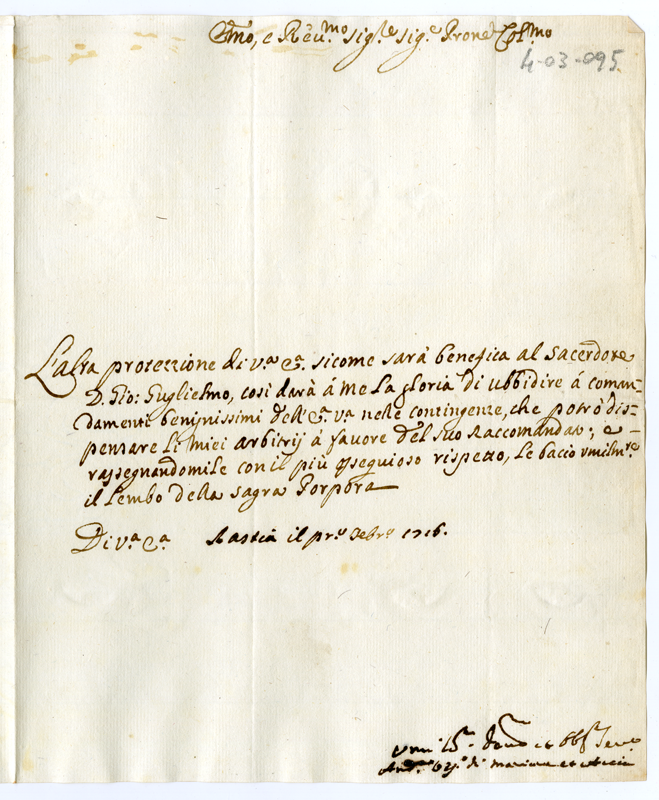 Emo, e Rev.mo sig.re sig.e Prone Col.mo
4-03-095.
L'alta protezzione di v.a E.a sicome sarà benefica al Sacerdote
D. Gio: Guglielmo, così darà á me la gloria di ubbidire á coman-
damenti benignissimi dell'E.a v.a nelle contingenze, che potrò dis-
pensare li miei arbitrij á favore del suo Raccomandato; e
rassegnandomile con il più osseguioso rispetto, le bacio umilm.te
il Lembo della sagra Porpora
Di v.a E.a Bastia il pr.o Febr.o 1716.